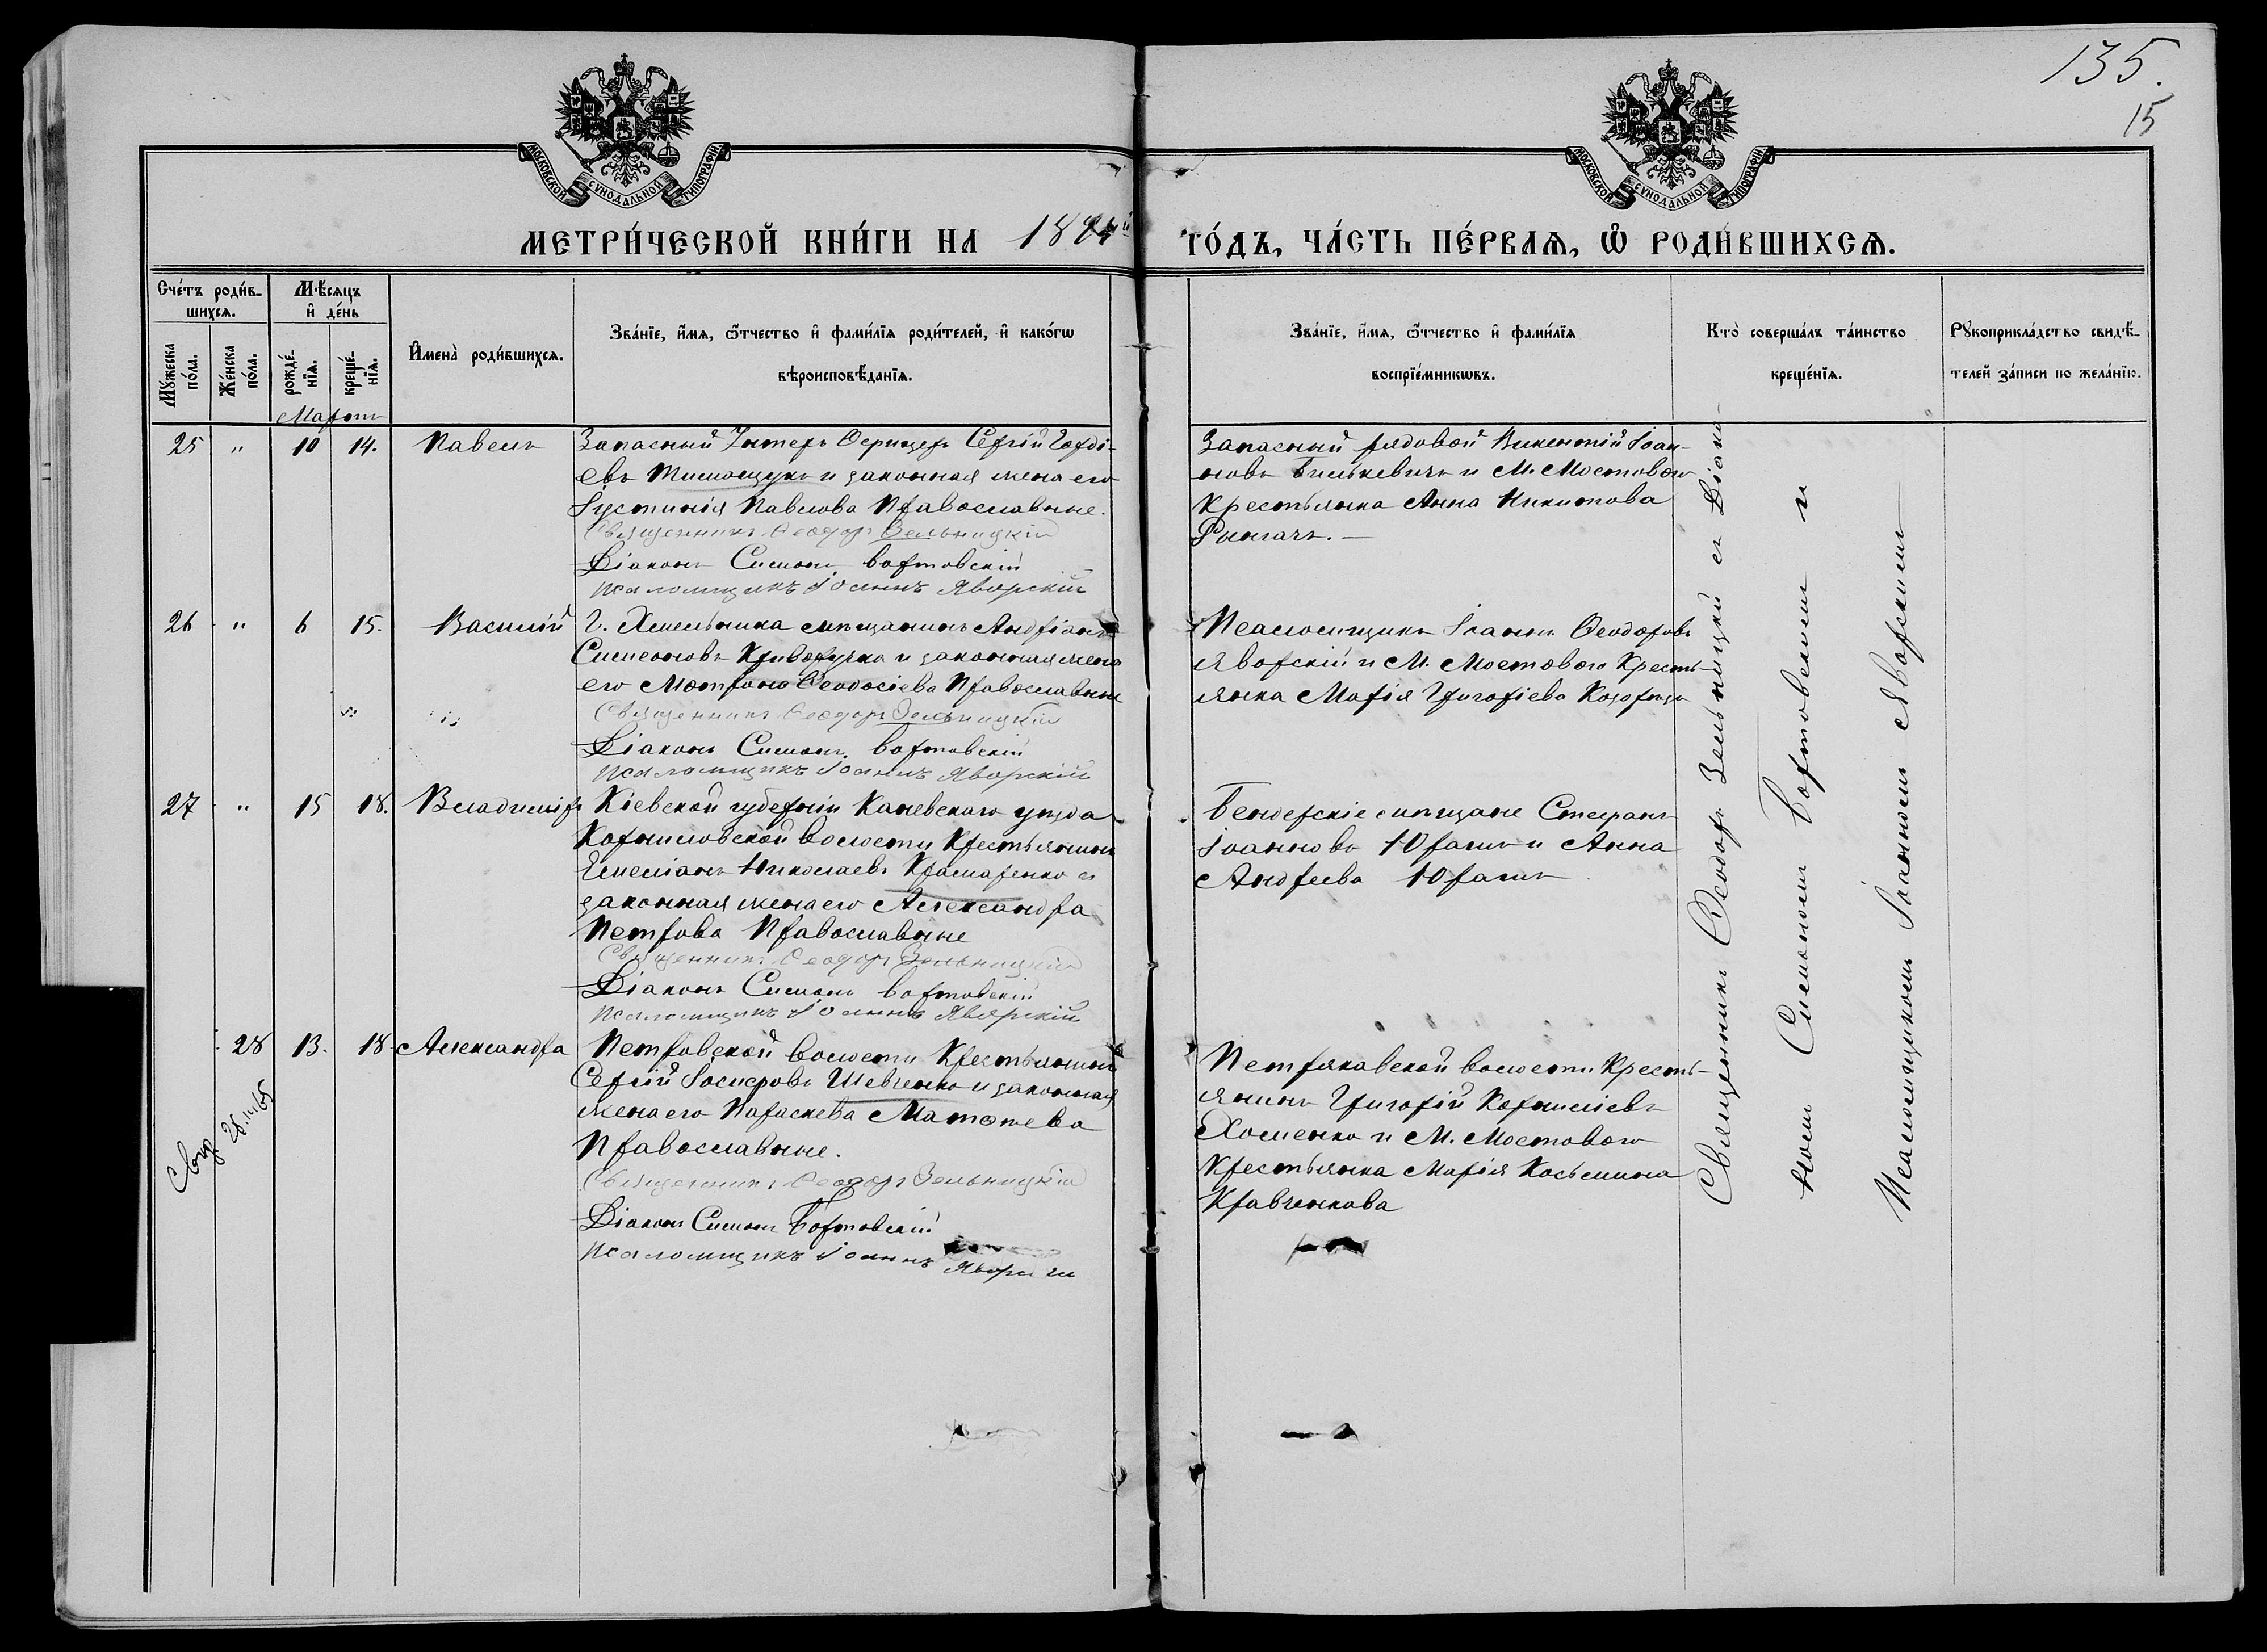 135.
15
МОСКОВСКОЙ СѴНОДАЛЬНОЙ ТИПОГРАФІИ
МОСКОВСКОЙ СѴНОДАЛЬНОЙ ТИПОГРАФІИ
МЕТРИ́ЧЕСКОЙ КНИ́ГИ НА 189 ГО́ДЪ, ЧА́СТЬ ПЕ́РВАѦ, Ѡ҆ РОДИ́ВШИХСѦ.
Сче́тъ роди́в-
шихсѧ.
Мꙋ́жеска по́ла.
Же́нска по́ла.
Мѣ́сяцъ
и҆ де́нь
рожде́-
нїѧ.
креще́-
нїѧ.
И҆мена̀ роди́вшихсѧ.
Зва́нїе, и҆́мѧ, ѻ҆́тчество и҆ фами́лїѧ роди́телей, и҆ како́гѡ
вѣроисповѣ́данїѧ.
Зва́нїе, и҆́мѧ, ѻ҆́тчество и҆ фами́лїѧ
воспрїе́мникѡвъ.
Кто̀ соверша́лъ та́инство
креще́нїѧ.
Рꙋкоприкла́дство свидѣ́-
телей за́писи по жела́нїю.
Мартъ
25 " 10 14. Павелъ
Запасный Унтеръ Офицеръ Сергій Горді-
евъ Тимощукъ и законная жена его
Іустинія Павлова Православные.
Священникъ Ѳеодоръ Зельницкій
Діаконъ Симонъ Бортовскій
Псаломщикъ Іоаннъ Яворскій
Запасный рядовой Викентій Іоан-
новъ Билькевичъ и М. Мостовою
Крестьянка Анна Никитова
26 " 6 15. Василій
Г. Хмельника мѣщанинъ Андріанъ
Симеоновъ Криворучка и законная жена
его Мотрона Ѳеодосіева Православные
Священникъ Ѳеодоръ Зельницкій
Діаконъ Симонъ Бортовскій
Псаломщикъ Іоаннъ Яворскій
Псаломщикъ Іоаннъ Ѳеодоровъ
Яворскій и М. Мостового Кресть-
янка Марія Григоріева
27 " 15 18. Владиміръ
Кіевской губерніи Каневскаго уѣзда
Корниловской волости Крестьянинъ
Емеліанъ Николаевъ Крамаренко и
законная жена его Александра
Петрова Православные
Священникъ Ѳеодоръ Зельницкій
Діаконъ Симонъ Бортовскій
Псаломщикъ Іоаннъ Яворскій
Бендерскіе мѣщане Стефанъ
Іоанновъ и Анна
Андреева
28 13. 18. Александра
Петровской волости Крестьянинъ
Сергій Іосифовъ Шевченко и законная
жена его Параскева Матѳеева
Православные.
Священникъ Ѳеодоръ Зельницкій
Діаконъ Симонъ Бортовскій
Псаломщикъ Іоаннъ
Яворскій
Петряковской волости Кресть-
янинъ Григорій Корниліевъ
Хоменко и М. Мостового
Крестьянка Марія Косьмина
Кравченкова
Священникъ Ѳеодоръ Зельницкій съ Діако-
номъ Симономъ Бортовскимъ и
Псаломщикомъ Іоанномъ Яворскимъ